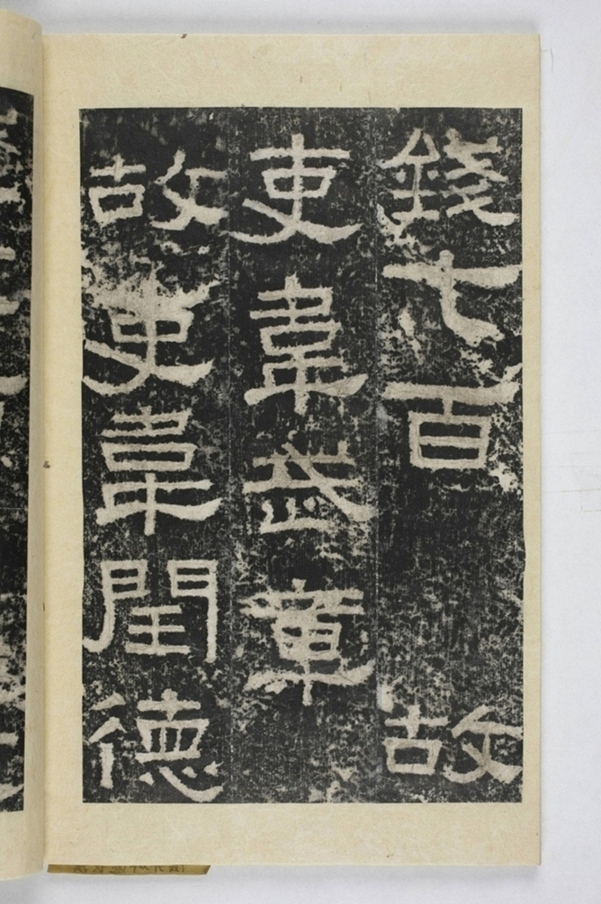 錢七百　故
吏韋武章
故吏韋閏德